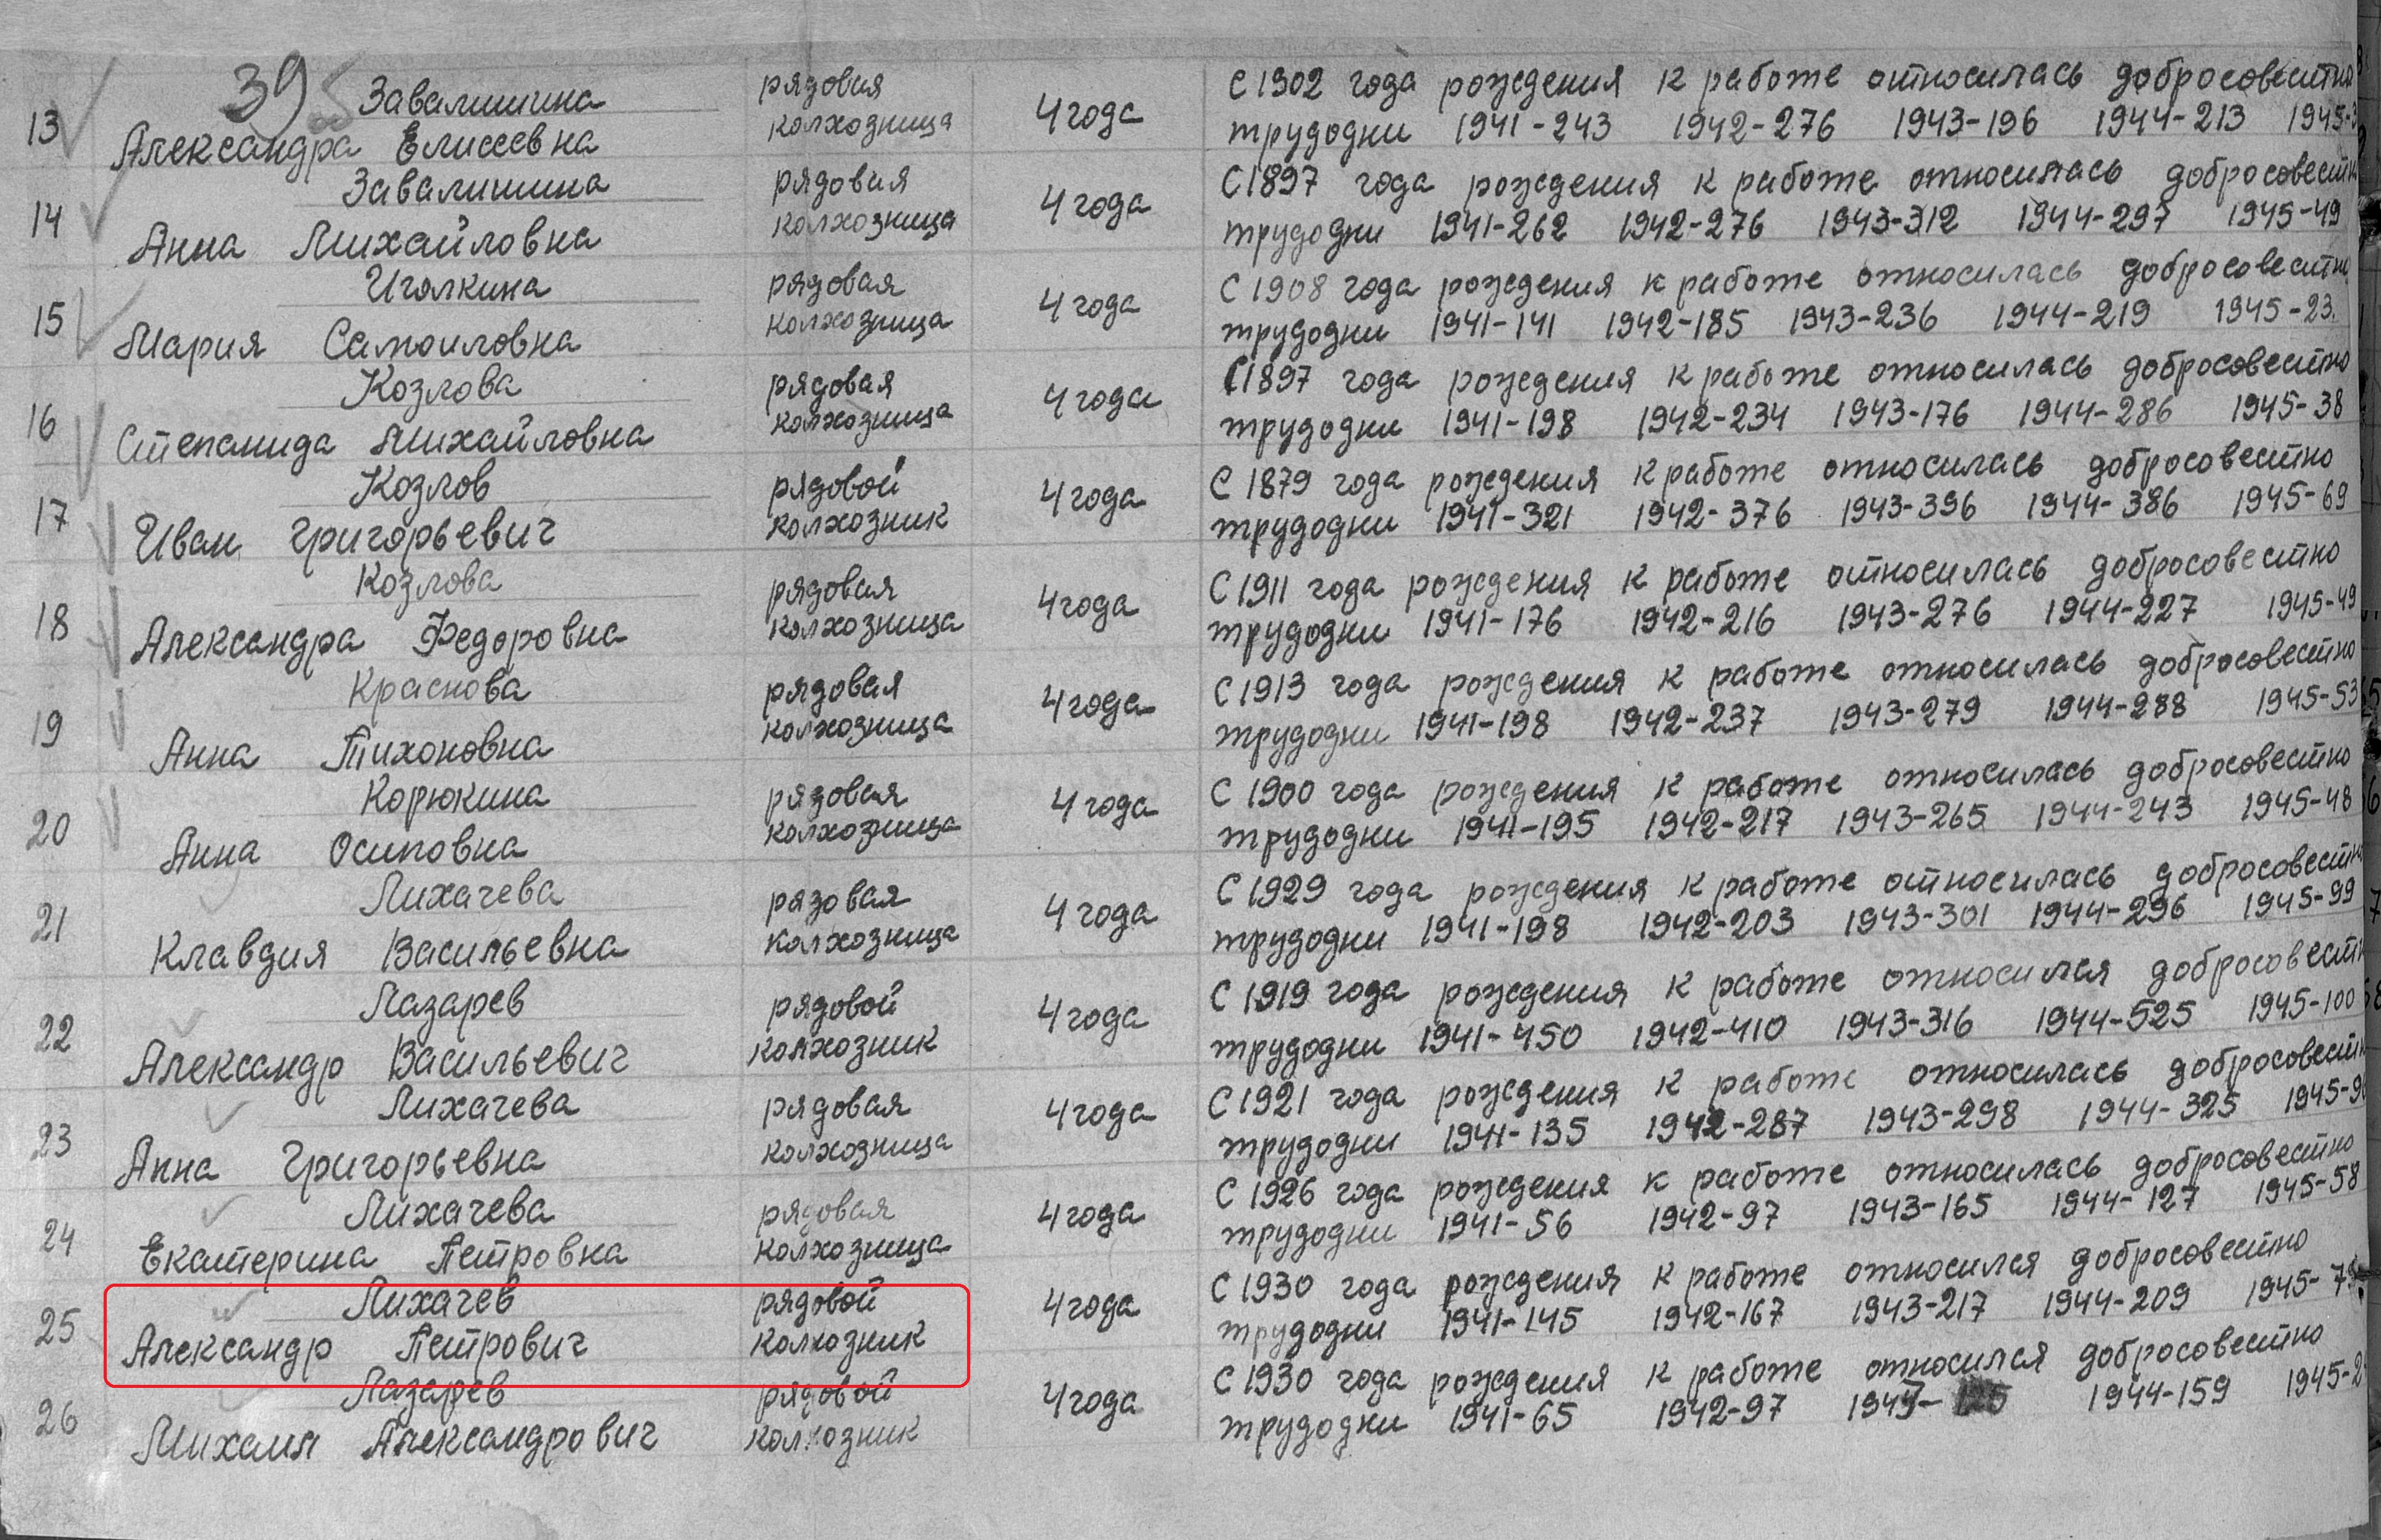 39
13 Завалишина рядовая 4 года С 1902 года рождения к работе относилась добросовестно
Александра Елисеевна колхозница трудодни 1941-243 1942-276 1943-196 1944-213 1945-3
14 Завалишина рядовая 4 года С 1897 года рождения к работе относилась добросовестн
Анна Михайловна колхозница трудодни 1941-262 1942-276 1943-312 1944-297 1945-49
15 Игялкина рядовая 4 года С 1908 года рождения к работе относилась добросовестно
Мария Самоиловна колхозница трудодни 1941-141 1942-185 1943-236 1944-219 1945-23
16 Козлова рядовая 4 года С 1897 года рождения к работе относилась добросовестно
Степанида Михайловна колхозница трудодни 1941-198 1942-234 1943-176 1944-286 1945-38
17 Козлов рядовой 4 года С 1879 года рождения к работе относилась добросовестно
Иван Григорьевич колхозник трудодни 1941-321 1942-376 1943-396 1944-386 1945-69
18 Козлова рядовая 4 года С 1911 года рождения к работе относилась добросовестно
Александра Федоровна колхозница трудодни 1941-176 1942-216 1943-276 1944-227 1945-49
19 Краснова рядовая 4 года С 1913 года рождения к работе относилась добросовестно
Анна Тихоновна колхозница трудодни 1941-198 1942-237 1943-279 1944-288 1945-53
20 Корюкина рядовая 4 года С 1900 года рождения к работе относилась добросовестно
Анна Осиповна колхозница трудодни 1941-195 1942-217 1943-265 1944-243 1945-48
21 Лихачева рядовая 4 года С 1929 года рождения к работе относилась добросовестно
Клавдия Васильевна колхозница трудодни 1941-198 1942-203 1943-301 1944-296 1945-99
22 Лазарев рядовой 4 года С 1919 года рождения к работе относился добросовестн
Александр Васильевич колхозник трудодни 1941-450 1942-410 1943-316 1944-525 1945-100
23 Лихачева рядовая 4 года С 1921 года рождения к работе относилась добросовестн
Анна Григорьевна колхозница трудодни 1941-135 1942-287 1943-298 1944-325 1945-96
24 Лихачева рядовая 4 года С 1926 года рождения к работе относилась добросовестно
Екатерина Петровна колхозница трудодни 1941-56 1942-97 1943-165 1944-127 1945-58
25 Лихачев рядовой 4 года С 1930 года рождения к работе относился добросовестно
Александр Петрович колхозник трудодни 1941-145 1942-167 1943-217 1944-209 1945-7
26 Лазарев рядовой 4 года С 1930 года рождения к работе относился добросовестно
Михаил Александрович колхозник трудодни 1941-65 1942-97 1943- 1944-159 1945-2